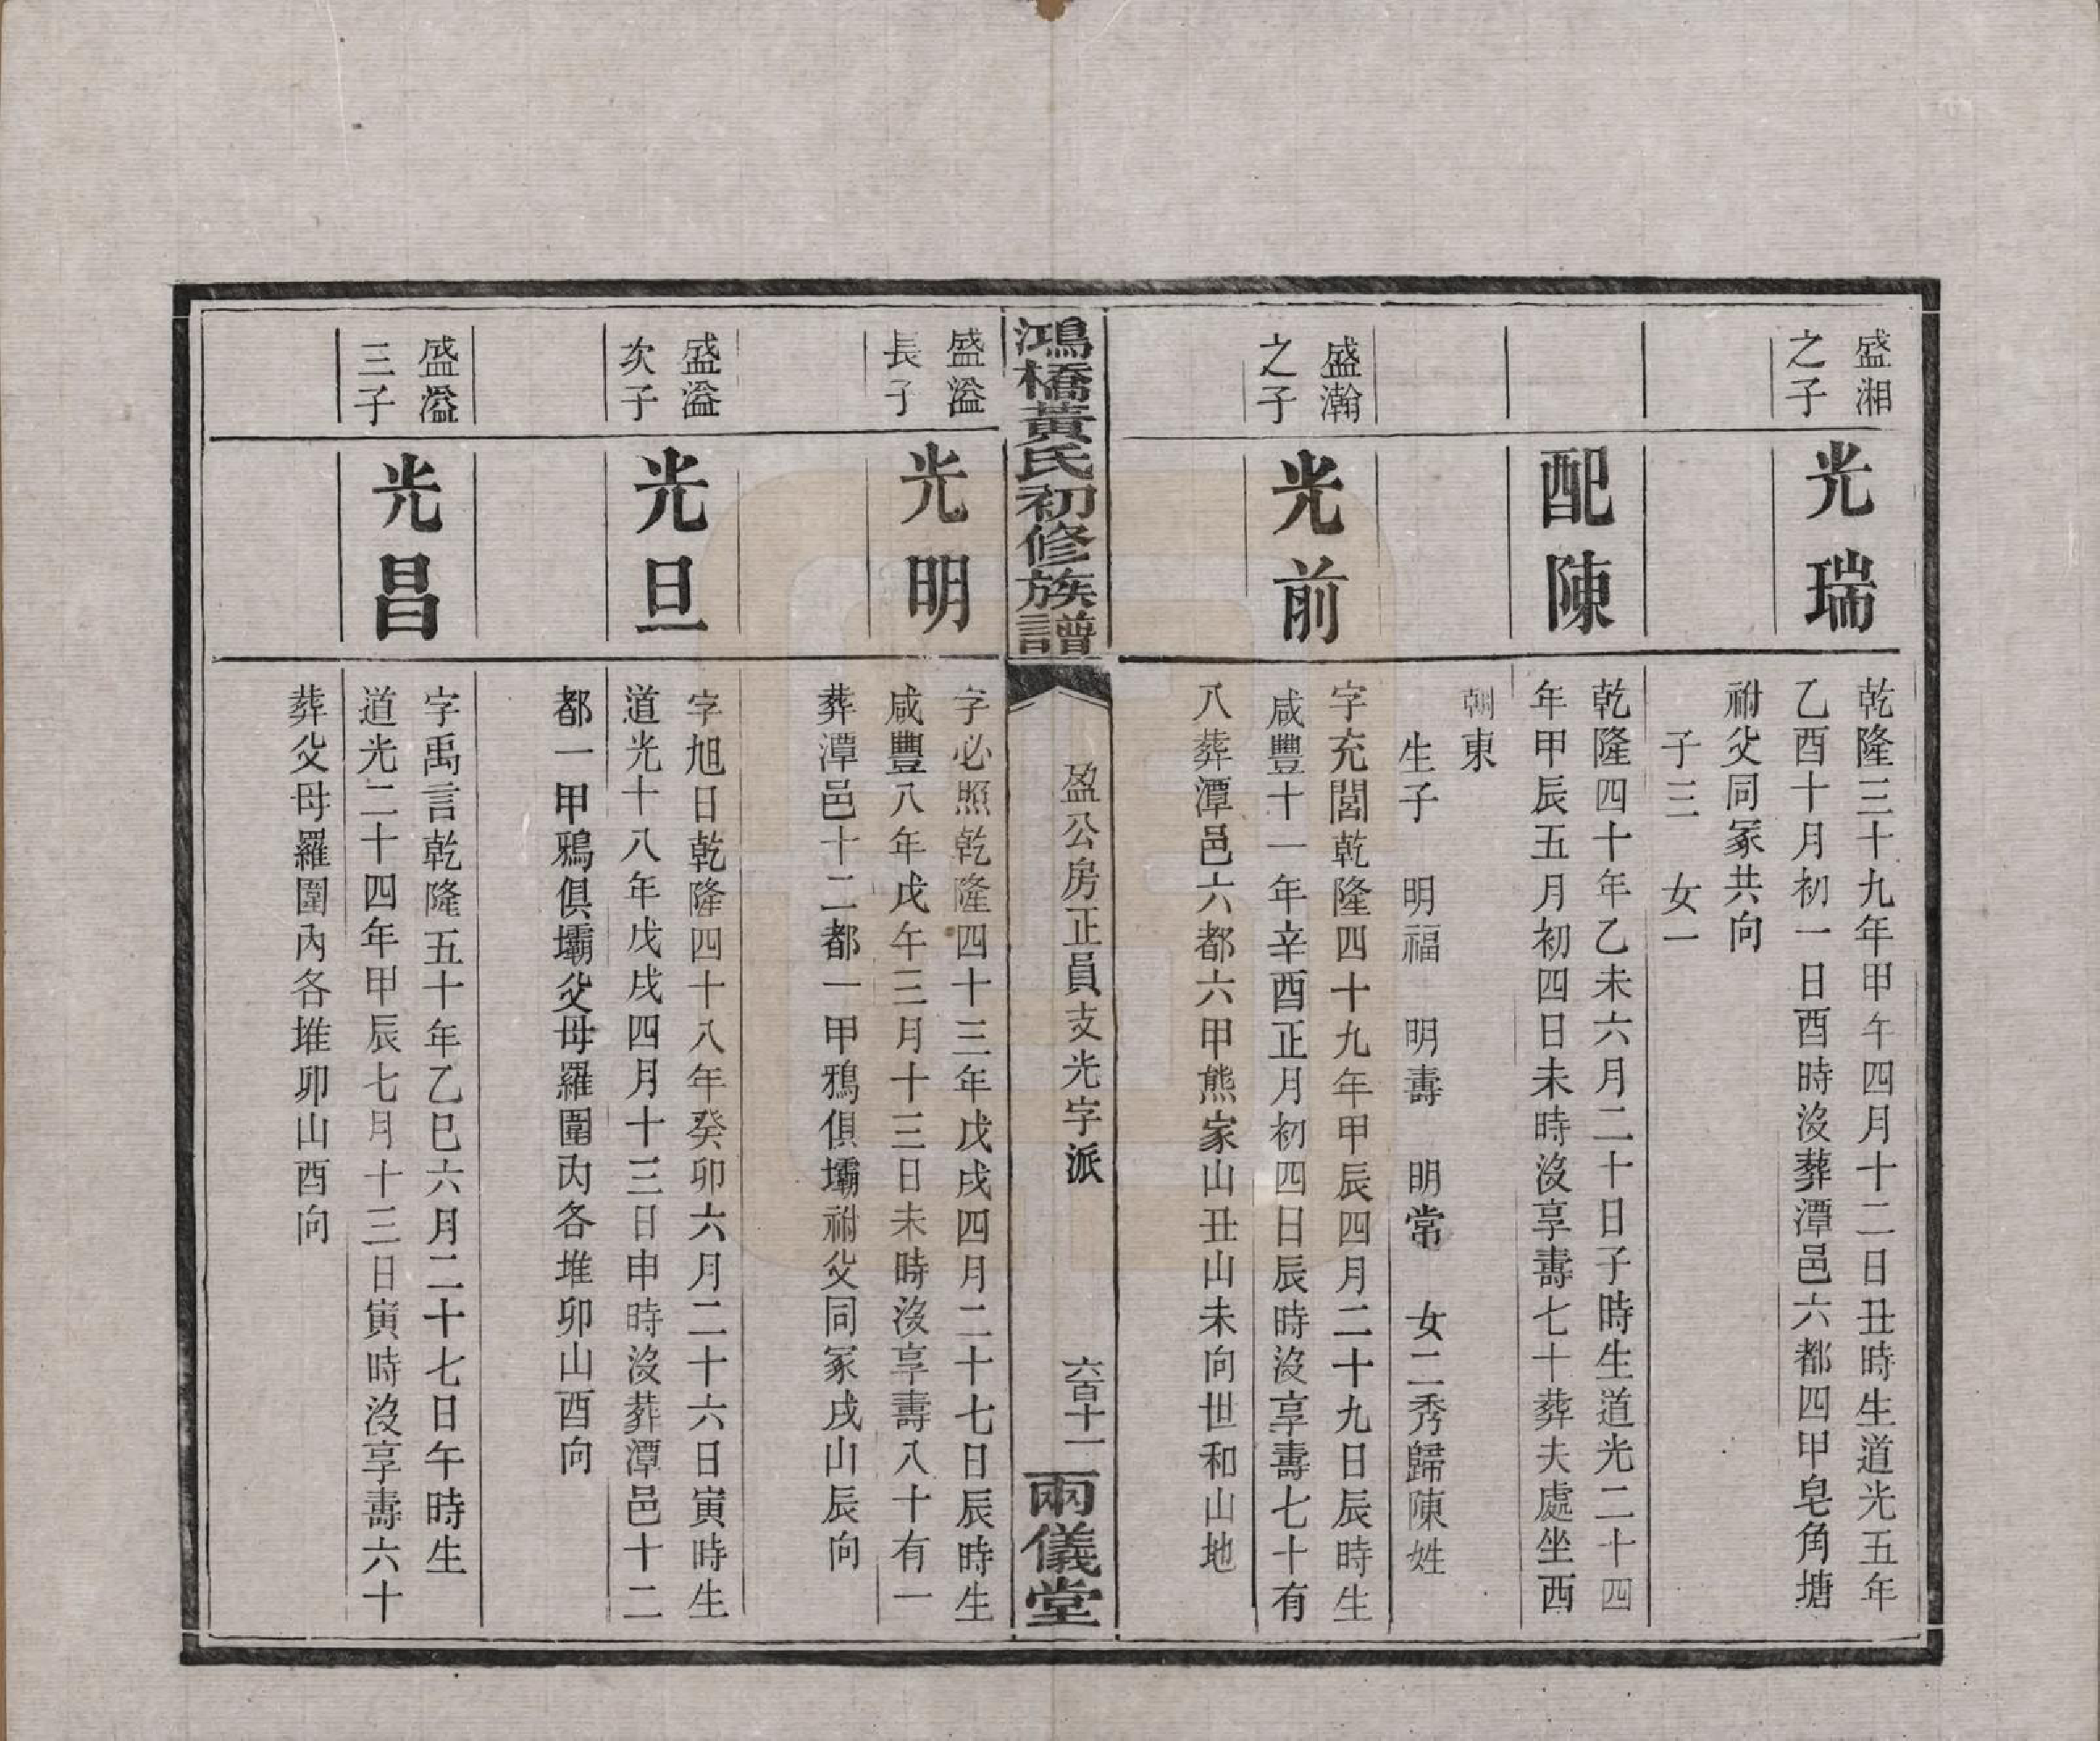 盛湘
之子
光瑞
乾隆三十九年甲午四月十二日丑時生道光五年
乙酉十月初一日酉時沒葬潭邑六都四甲皂角塘
祔父同冢共向
子三　女一
配陳
乾隆四十年乙未六月二十日子時生道光二十四
年甲辰五月初四日未時沒享壽七十葬夫處坐西
朝東
生子　明福　明壽　明常　女二秀歸陳姓
盛瀚
之子
光前
字充閭乾隆四十九年甲辰四月二十九日辰時生
咸豐十一年辛酉正月初四日辰時沒享壽七十有
八葬潭邑六都六甲熊家山丑山未向世和山地
鴻橋黃氏初修族譜
盈公房正員支光字派
六百十一
兩儀堂
盛溢
長子
光明
字必照乾隆四十三年戊戌四月二十七日辰時生
咸豐八年戊午三月十三日未時沒享壽八十有一
葬潭邑十二都一甲鴉俱壩祔父同冢戌山辰向
盛溢
次子
光旦
字旭日乾隆四十八年癸卯六月二十六日寅時生
道光十八年戊戌四月十三日申時沒葬潭邑十二
都一甲鴉俱壩父母羅圍內各堆卯山酉向
盛溢
三子
光昌
字禹言乾隆五十年乙巳六月二十七日午時生
道光二十四年甲辰七月十三日寅時沒享壽六十
葬父母羅圍內各堆卯山酉向